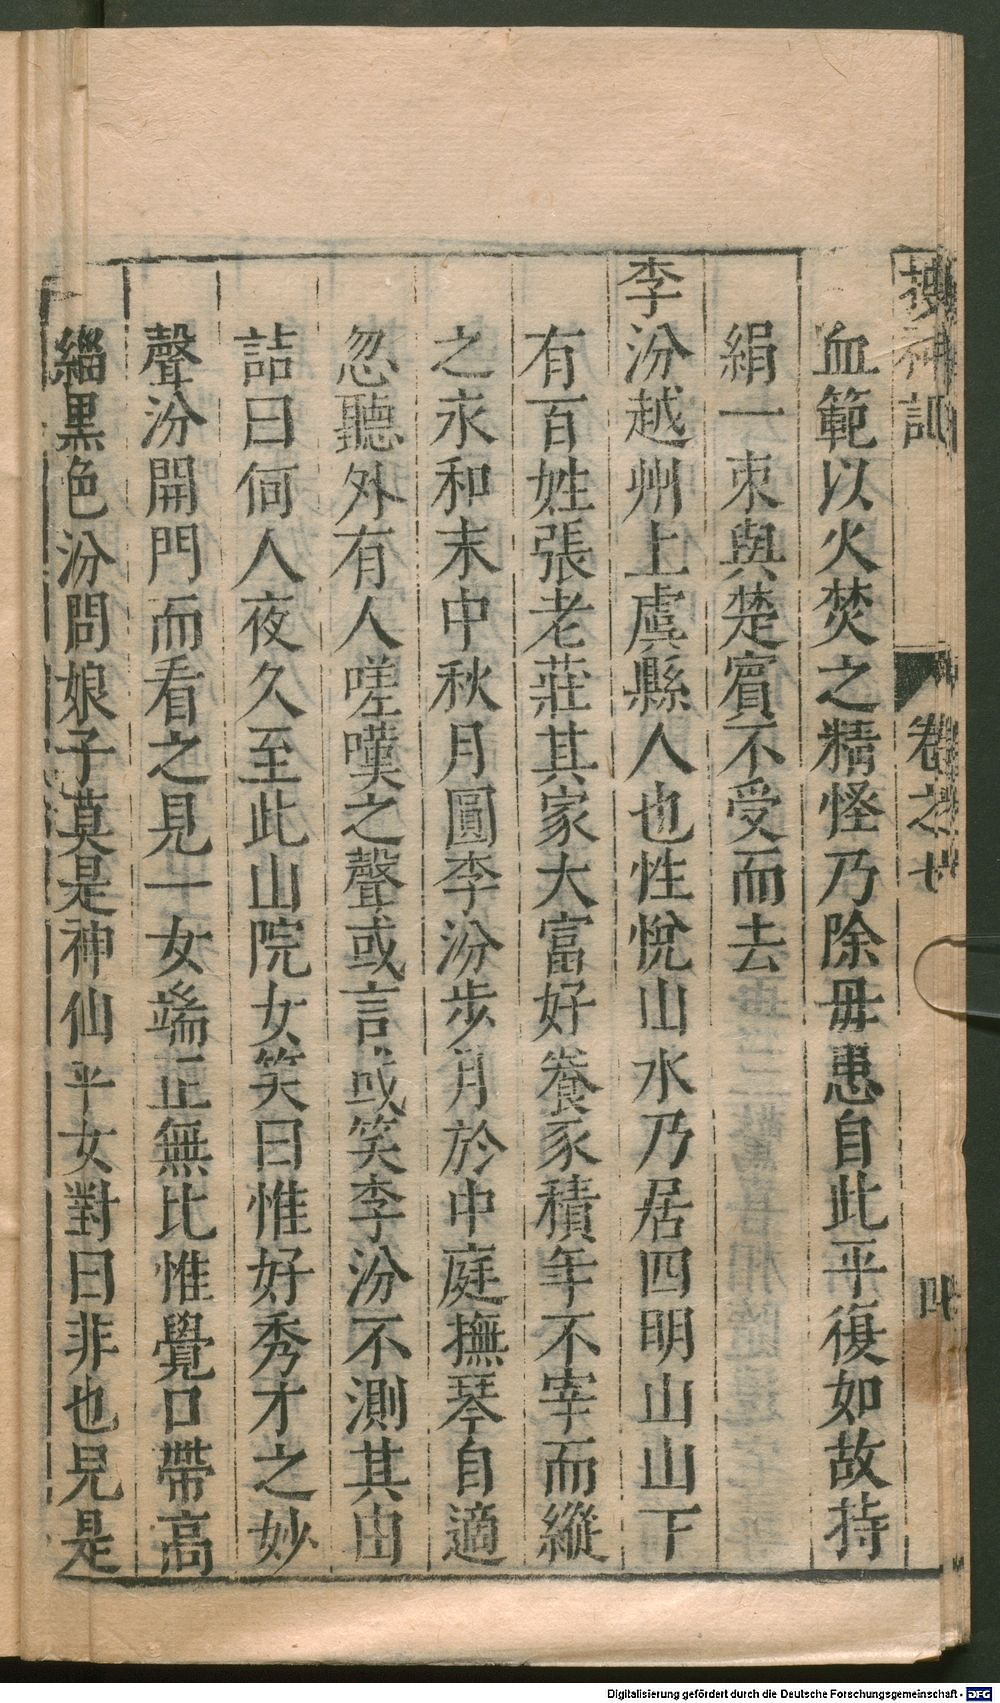 搜神記
卷之七
四
血範以火焚之精怪乃除毋患自此平復如故持
絹一束與楚賓不受而去
李汾越州上虞縣人也性悅山水乃居四明山山下
有百姓張老莊其家大富好養豕積年不宰而縱
之永和末中秋月圓李汾步月於中庭撫琴自適
忽聽外有人嗟嘆之聲或言或笑李汾不測其由
詰曰何人夜久至此山院女笑曰惟好秀才之妙
聲汾開門而看之見一女端正無比惟覺口帶高
緇黒色汾問娘子莫是神仙乎女對曰非也兒是
Digitalisierung gefördert durch die Deutsche Forschungsgemeinschaft - DFG